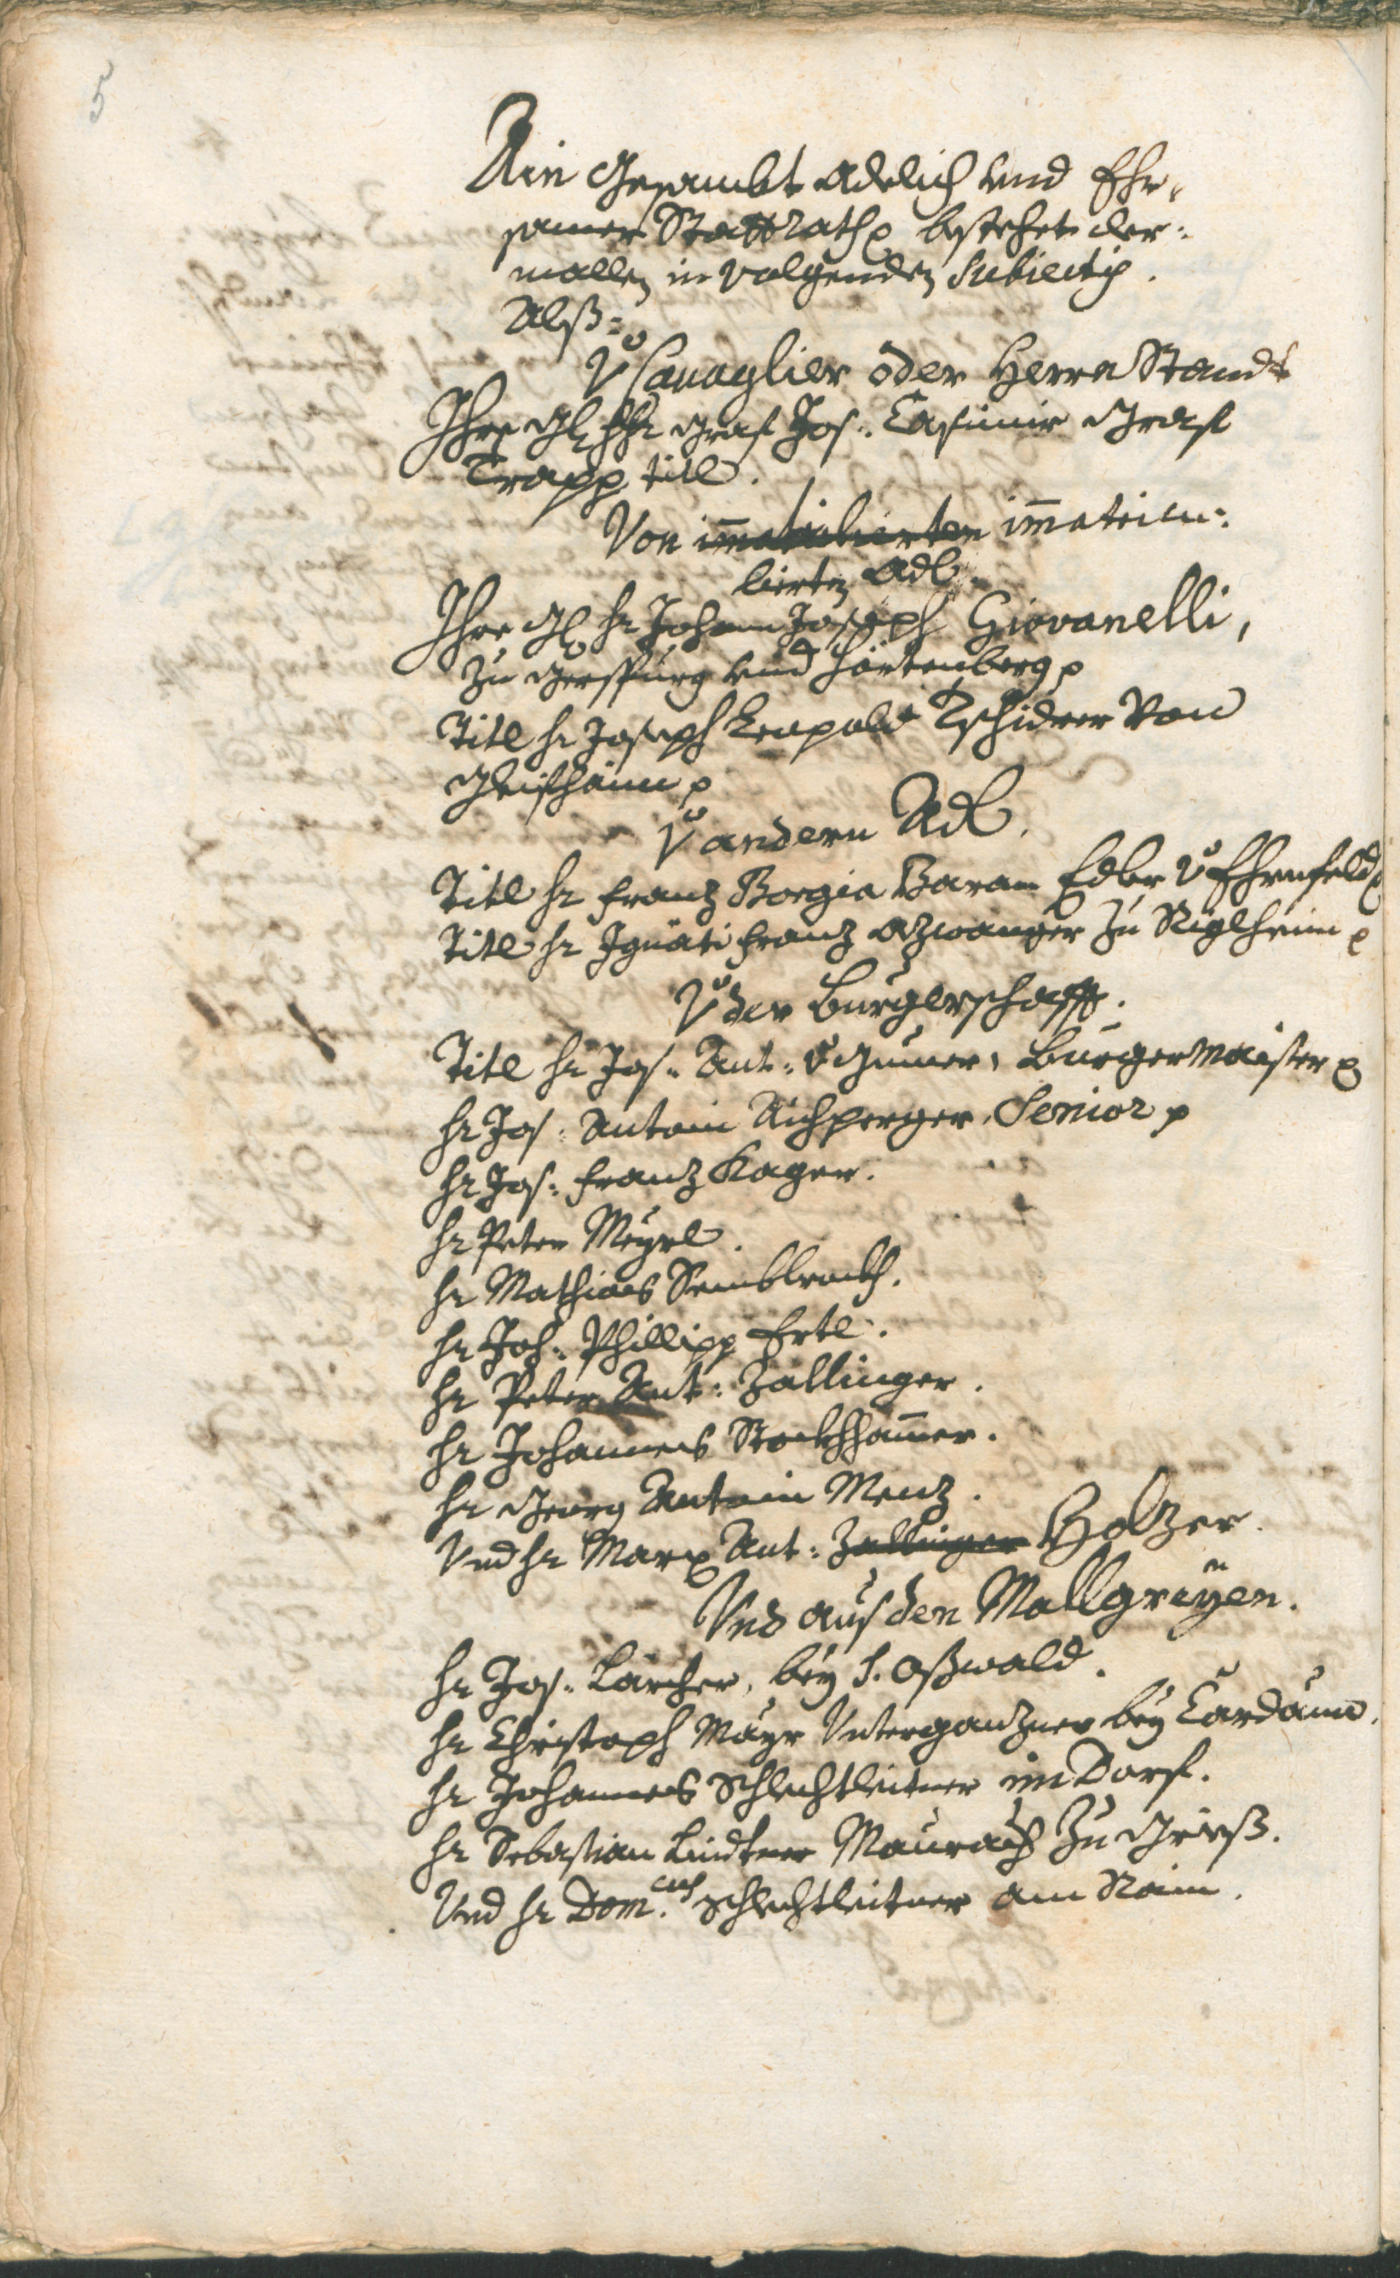 5
Ain Gesambt Adelich und Ehr„
samer Stattrath p bestehet der:
mallen in volgenden Subiectis.
Alß:
V. Cavaglier oder Herrn Standt
Ihro Graf Jos: Casimir Graf
Trapp titl.
Von im̅atriculierten im̅atricu:
lierten Adl.
Ihro Gn hr Johann Joseph Giovanelli,
zu Gerspurg und Hörtenberg p
Titl hr Joseph Leopold Tschidrer von
Gleifhaim p
V. andern Adl.
Titl hr Franz Borgia Baram Edler v. Ehrnfeld p
Titl hr Ignati Franz Azwanger zu Riglheim p
V. der Burgerschafft.
Titl hr Jos: Ant: Gumer, Burgermaister p
hr Jos: Antoni Aichperger, Senior p
hr Jos: Franz Kager.
hr Peter Mayrl.
hr Mathias Sembleroth.
hr Joh: Phillipp Ertl.
hr Peter Ant: Zallinger.
hr Johannes Stockhham̅er.
hr Georg Antoni Menz.
Und hr Marx Ant: Zallinger Holzer.
Und aus den Mallgreÿen.
hr Jos: Larcher, bey S. Oßwald.
hr Christoph Mayr Unterganzner bey Cardaun.
hr Johannes Schlechtleitner im Dorf.
hr Sebastian Lindtner Maurach zu Grieß.
Und hr Dom.cus Schlechtleitner am Rain.